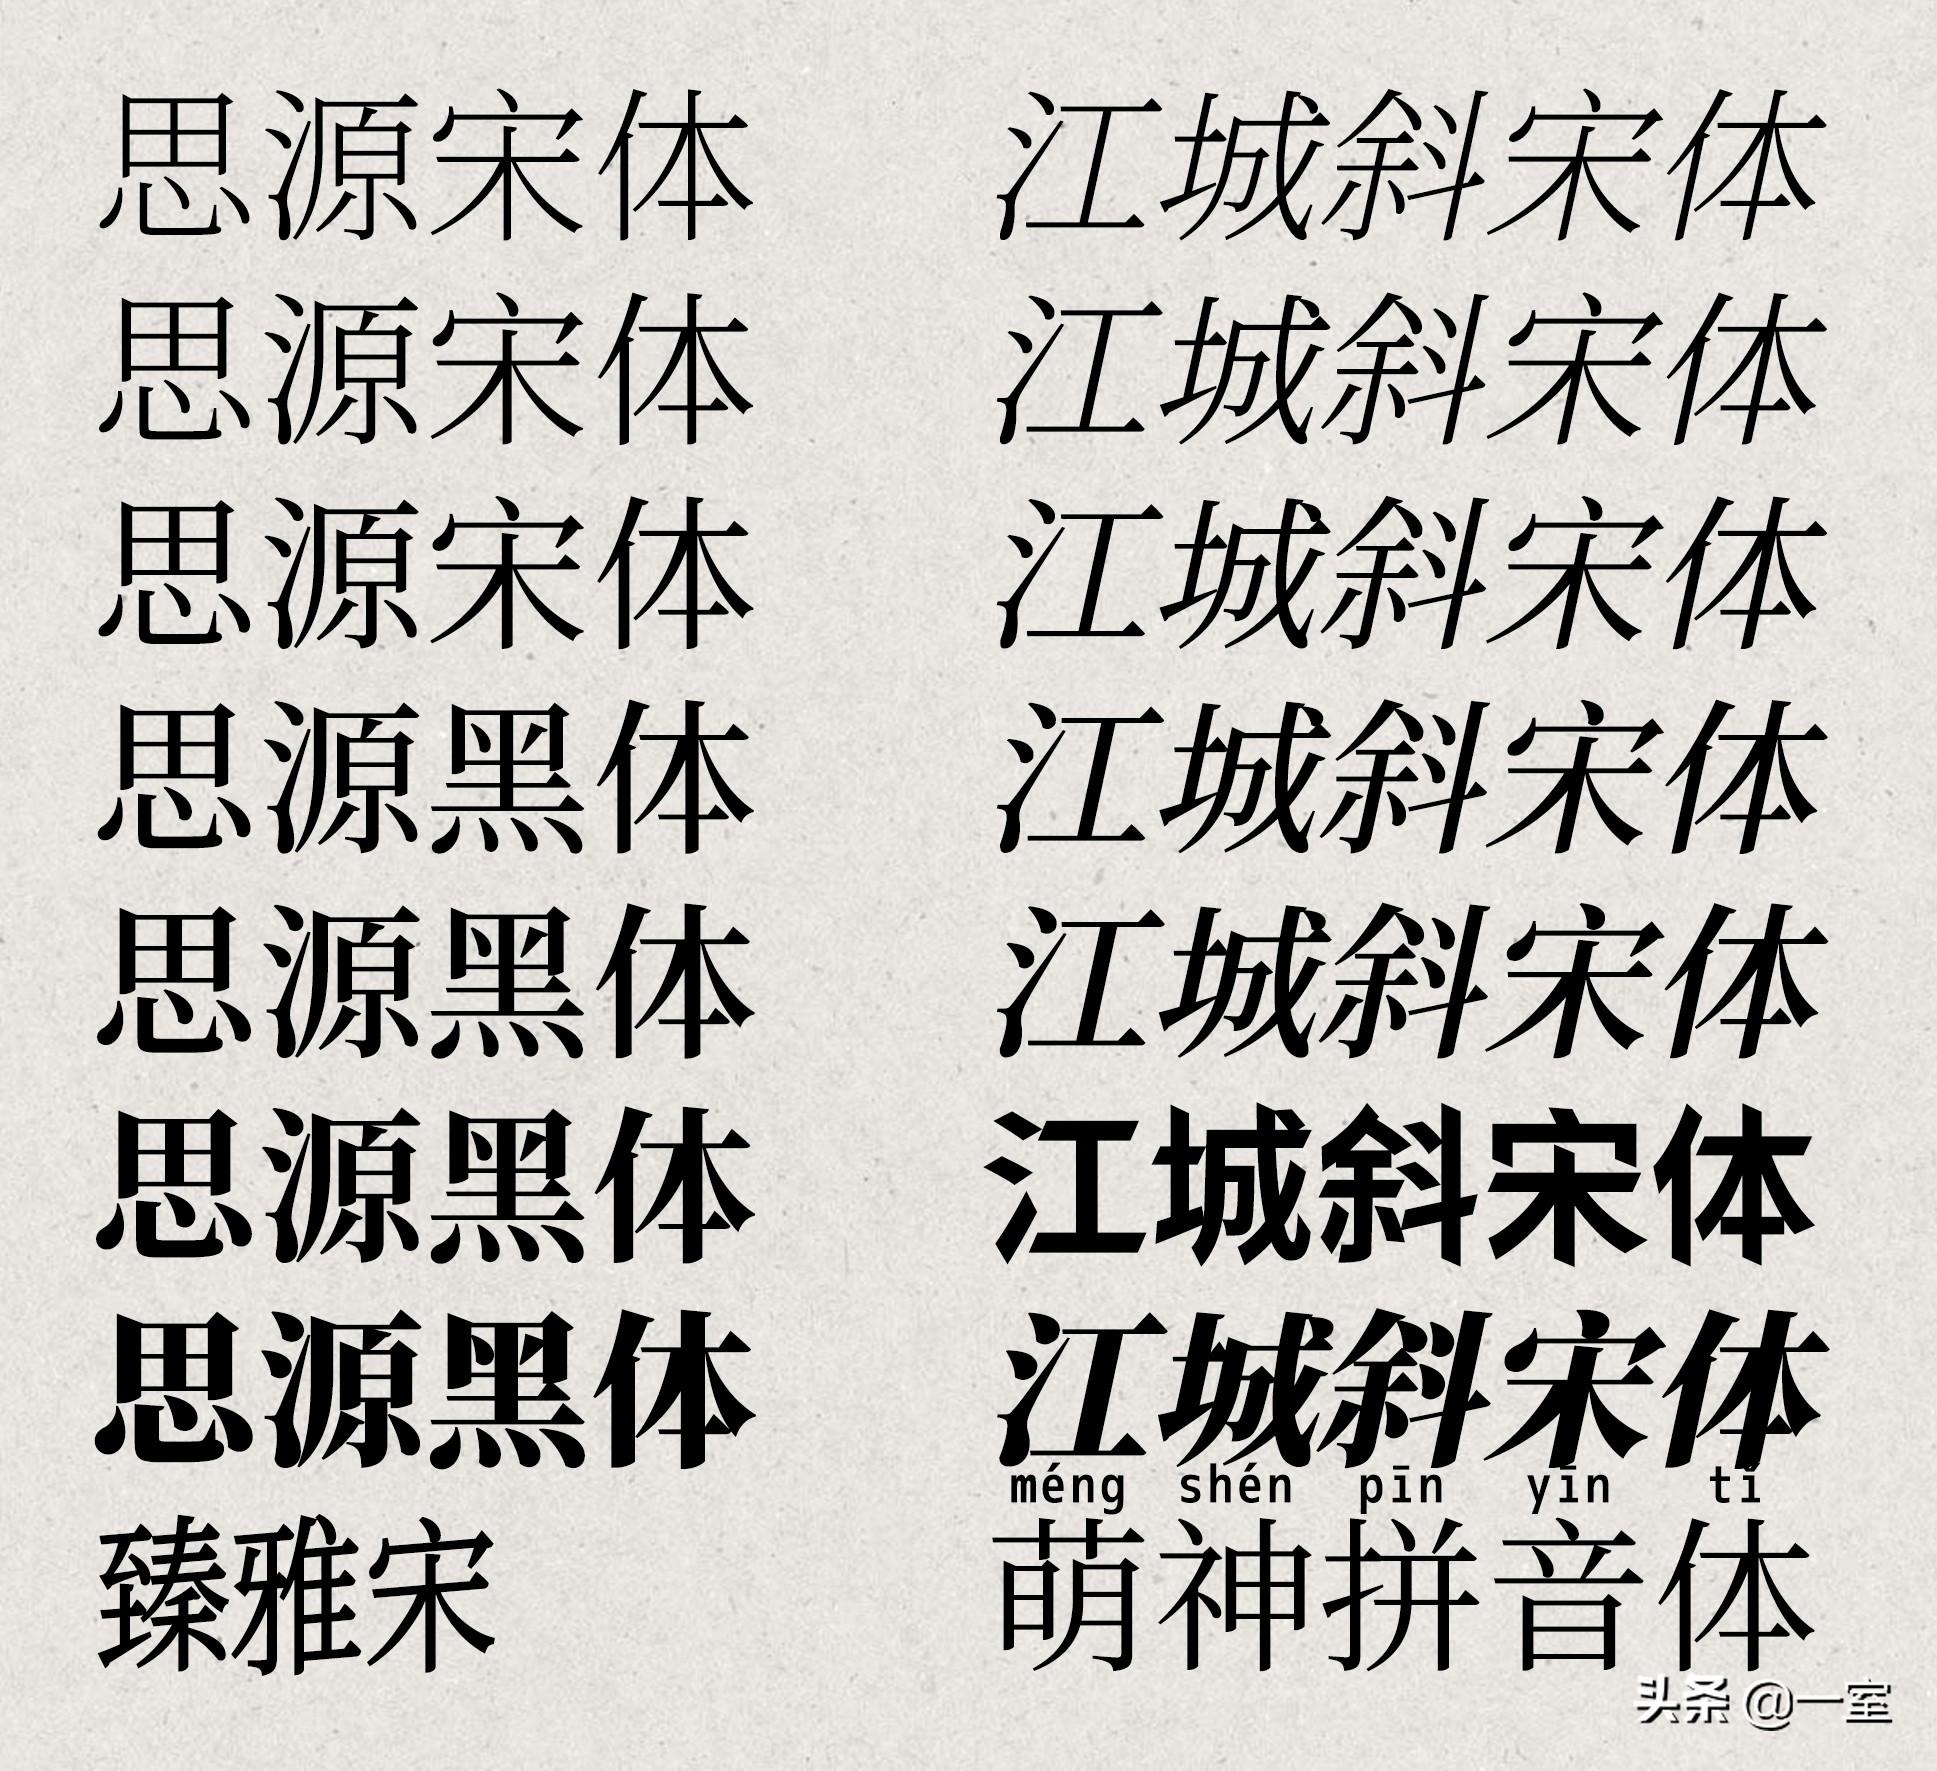 思源宋体 江城斜宋体
思源宋体 江城斜宋体
思源宋体 江城斜宋体
思源黑体 江城斜宋体
思源黑体 江城斜宋体
思源黑体 江城斜宋体
思源黑体 江城斜宋体
méng shén pīn yīn tǐ
臻雅宋 萌神拼音体
头条 @一室